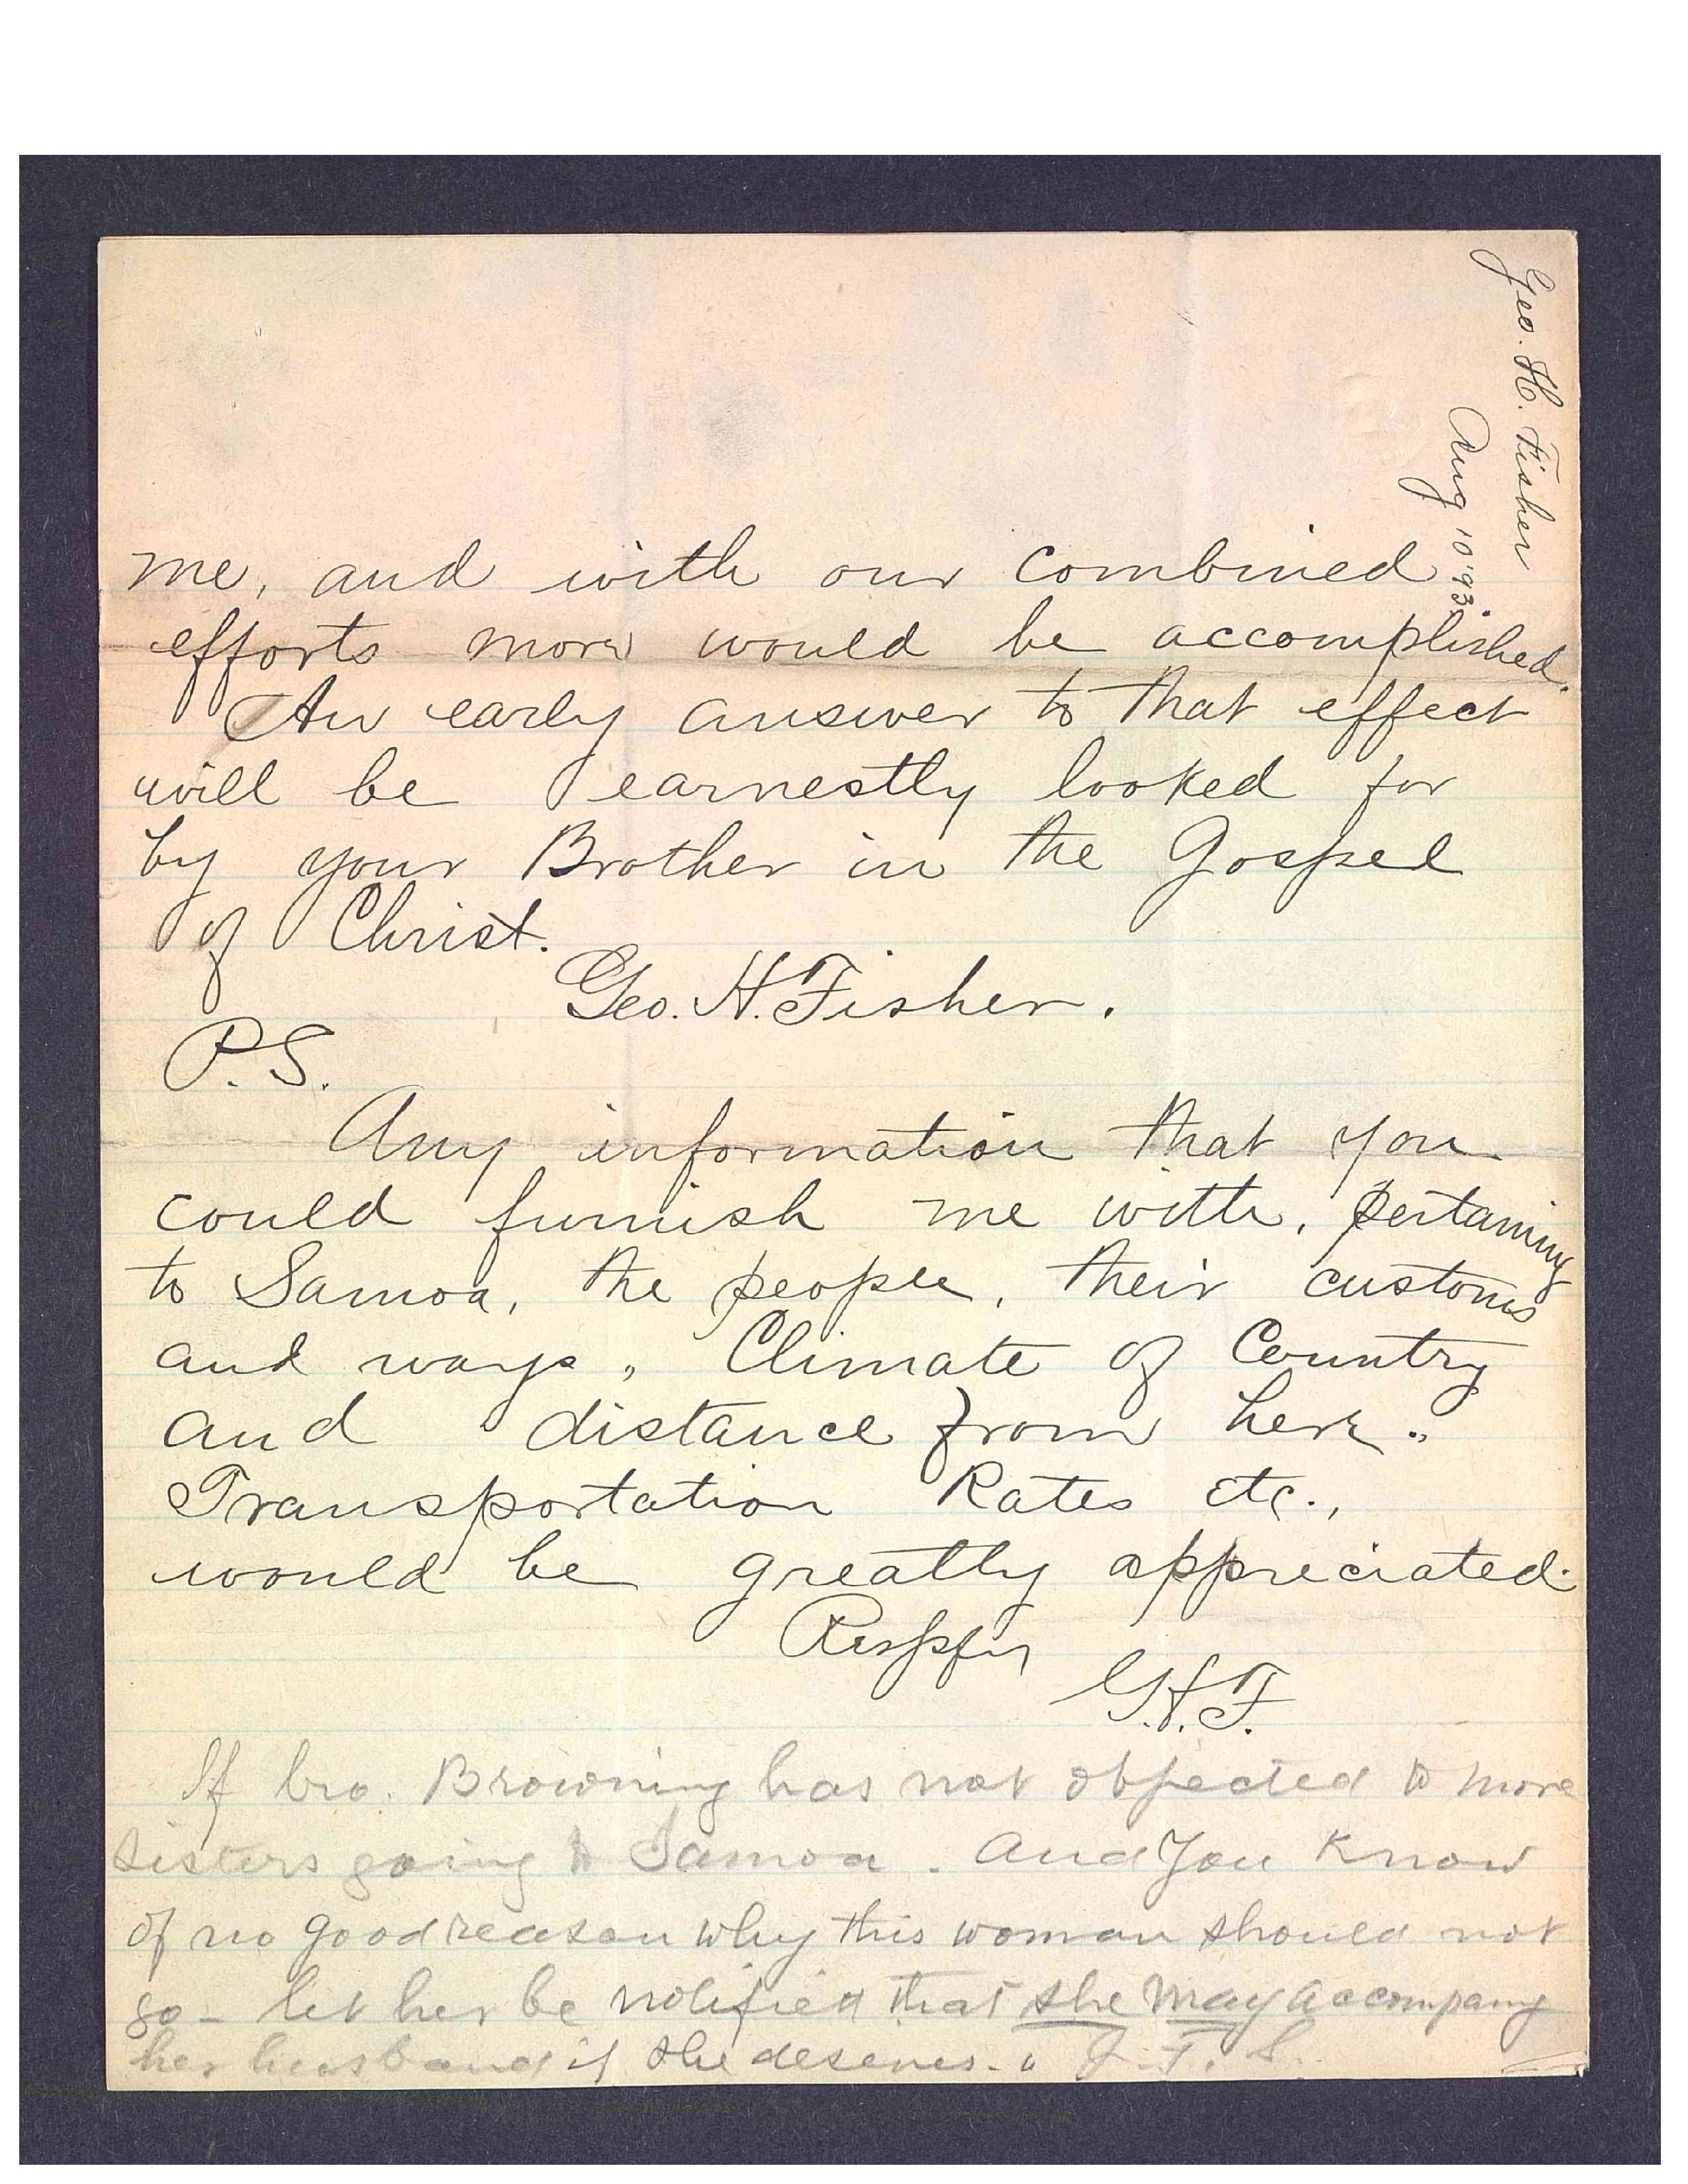 Geo. H. Fisher
Aug 10 '93.
me, and with our combined
efforts more would be accomplished.
An early answer to that effect
will be earnestly looked for
by your Brother in the Gospel
of Christ.
Geo. H. Fisher.
P.S.
Any information that you
could furnish me with, pertaining
to Samoa, the people, their customs
and ways, Climate of Country
and distance from here.
Transportation Rates etc.,
would be greatly appreciated.
Respfy
G.H.F.
If bro. Browning has not objected to more
sisters going to Samoa. And You Know
of no good reason why this woman should not
go - let her be notified that she may accompany
her husband if she desires. J. F. S.